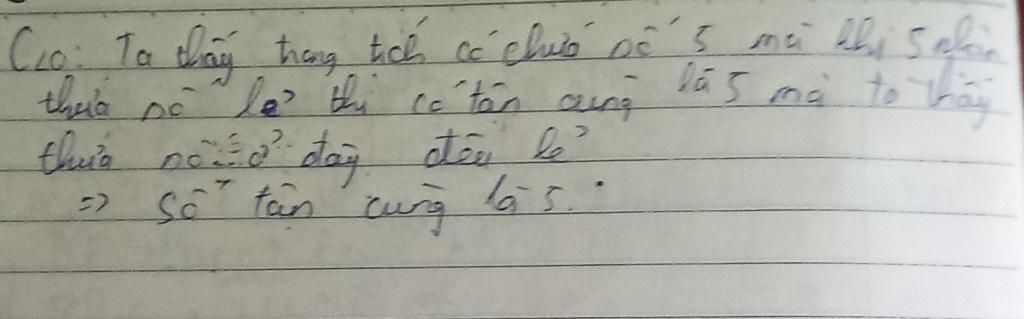 C10: Ta thấy trong tích có chứa số 5 mà khi 5 nhân
thừa số lẻ thì có tận cùng là 5 mà ta thấy
thừa số ở đây đều lẻ
=> Số tận cùng là 5.